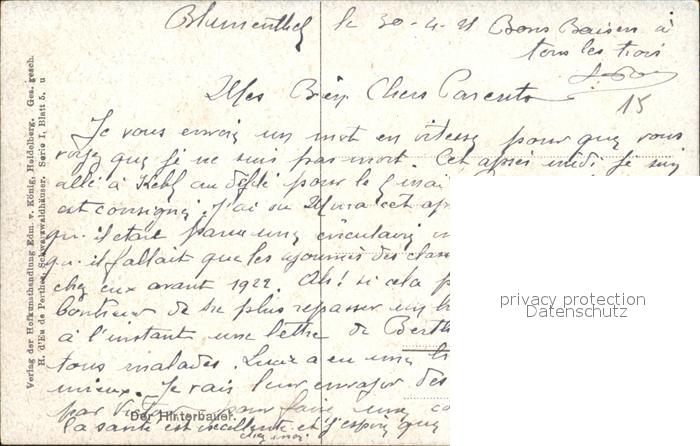 Blumenthal le 30-4-21 Bons Baisers à
tous les trois
15
Mes Bien Chers Parents
Je vous envoie un mot en vitesse pour que vous
voyez que je ne suis pas mort. Cet après midi je suis
allé à Kehl au défilé pour le
est consigné. J'ai vu cet
qu'il était paru une circulaire
qu'il fallait que les ajournés des classes
chez eux avant 1922. Ah! si cela
bonheur de ne plus repasser un
à l'instant une lettre de Berth
tous malades. a eu une
mieux. Je vais leur envoyer des
par pour faire une
la santé est excellente et j'espère que
chez moi
Der Hinterbauer.
Verlag der Hofkunsthandlung Edm. v. König, Heidelberg. Ges. gesch.
H. d'Eu de Perthes, Schwarzwaldhäuser. Serie I, Blatt 5. u
privacy protection
Datenschutz